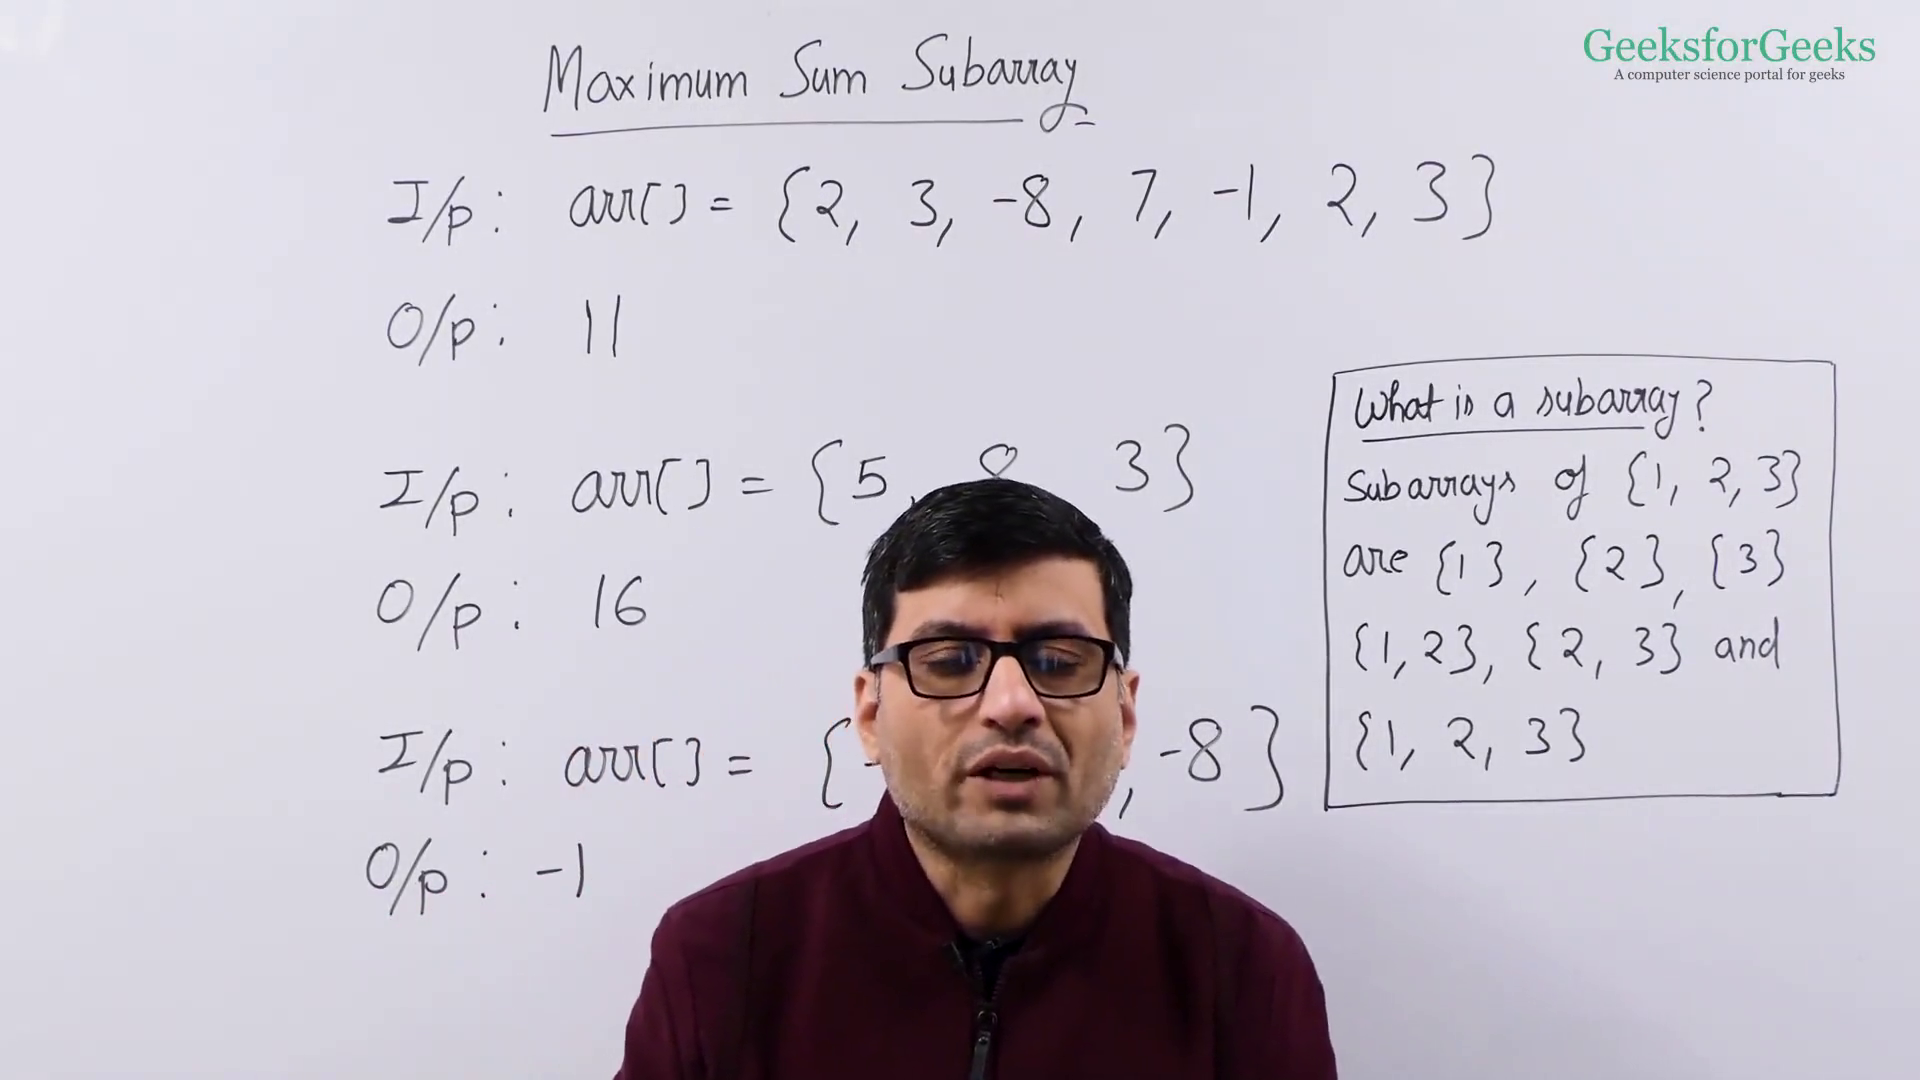 GeeksforGeeks
A computer science portal for geeks
Maximum Sum Subarray
I/p: arr[] = {2, 3, -8, 7, -1, 2, 3}
O/p: 11
I/p: arr[] = {5, 3}
O/p: 16
I/p: arr[] = { , -8}
O/p: -1
What is a subarray?
Subarrays of {1, 2, 3}
are {1}, {2}, {3}
{1,2}, {2, 3} and
{1, 2, 3}